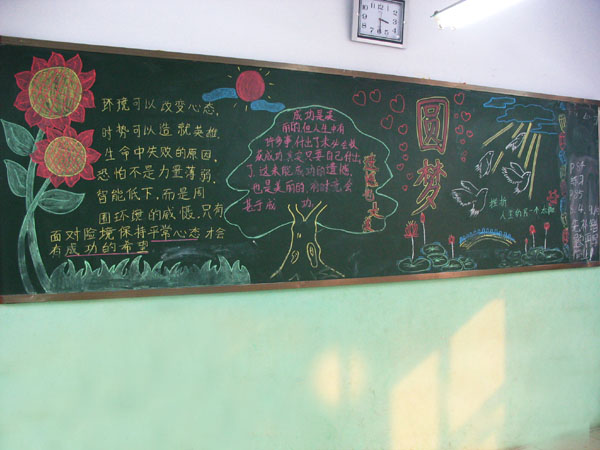 环境可以改变心态,
时势可以造就英雄.
生命中失败的原因,
恐怕不是力量薄弱.
智能低下,而是周
围环境的威慑,只有
面对险境保持平常心态才会
有成功的希望
成功是美
丽的,但人生中有
许多事付出了未必会
成功,其实只要自己付出
了,这未能成功的遗憾,
也是美丽的
甚于成功
圆梦
挫折
人生的另一个太阳